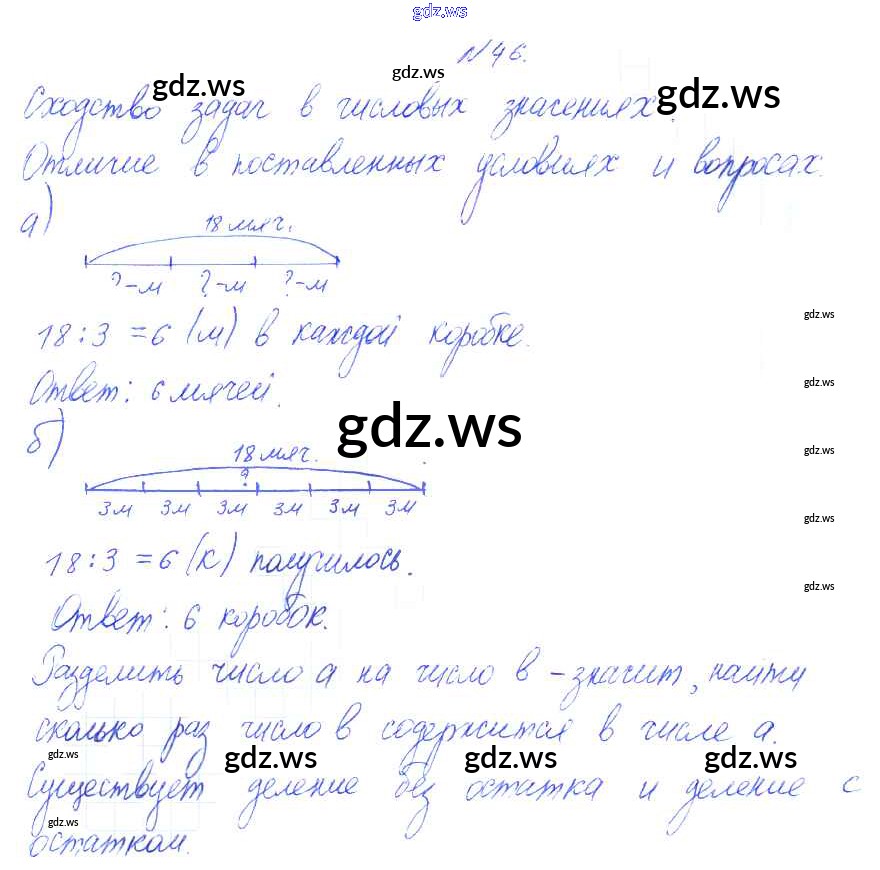 gdz.ws
№46.
gdz.ws gdz.ws gdz.ws
Сходство задач в числовых значениях.
Отличие в поставленных условиях и вопросах.
а)
18 мяч.
?-м ?-м ?-м
gdz.ws
18:3=6 (м) в каждой коробке.
gdz.ws
Ответ: 6 мячей.
gdz.ws
б)
18 мяч.
gdz.ws
?
3м 3м 3м 3м 3м 3м
gdz.ws
18:3=6 (к) получилось.
gdz.ws
Ответ: 6 коробок.
Разделить число а на число в - значит, найти
сколько раз число в содержится в числе а.
gdz.ws gdz.ws gdz.ws gdz.ws
Существует деление без остатка и деление с
gdz.ws
остатком.